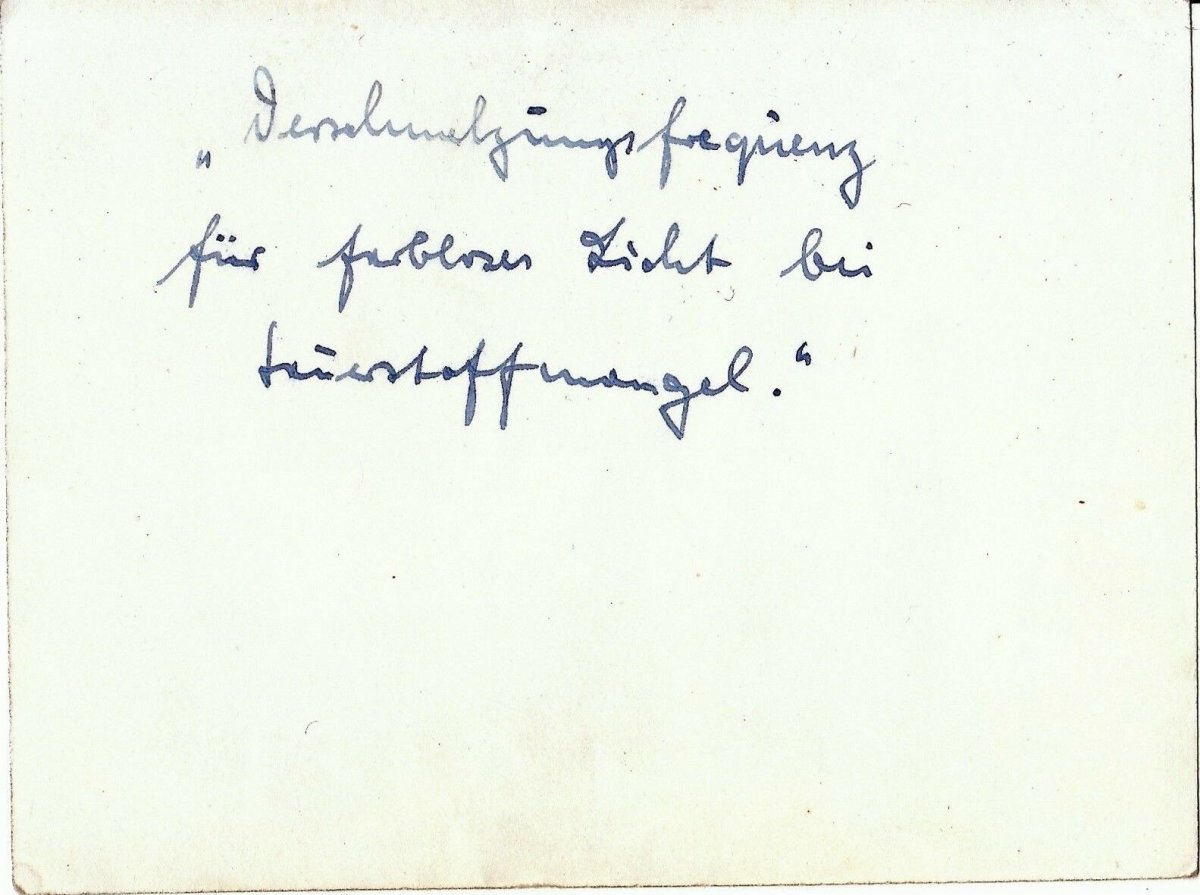 „Verschmelzungsfrequenz
für farbloses Licht bei
Sauerstoffmangel.“